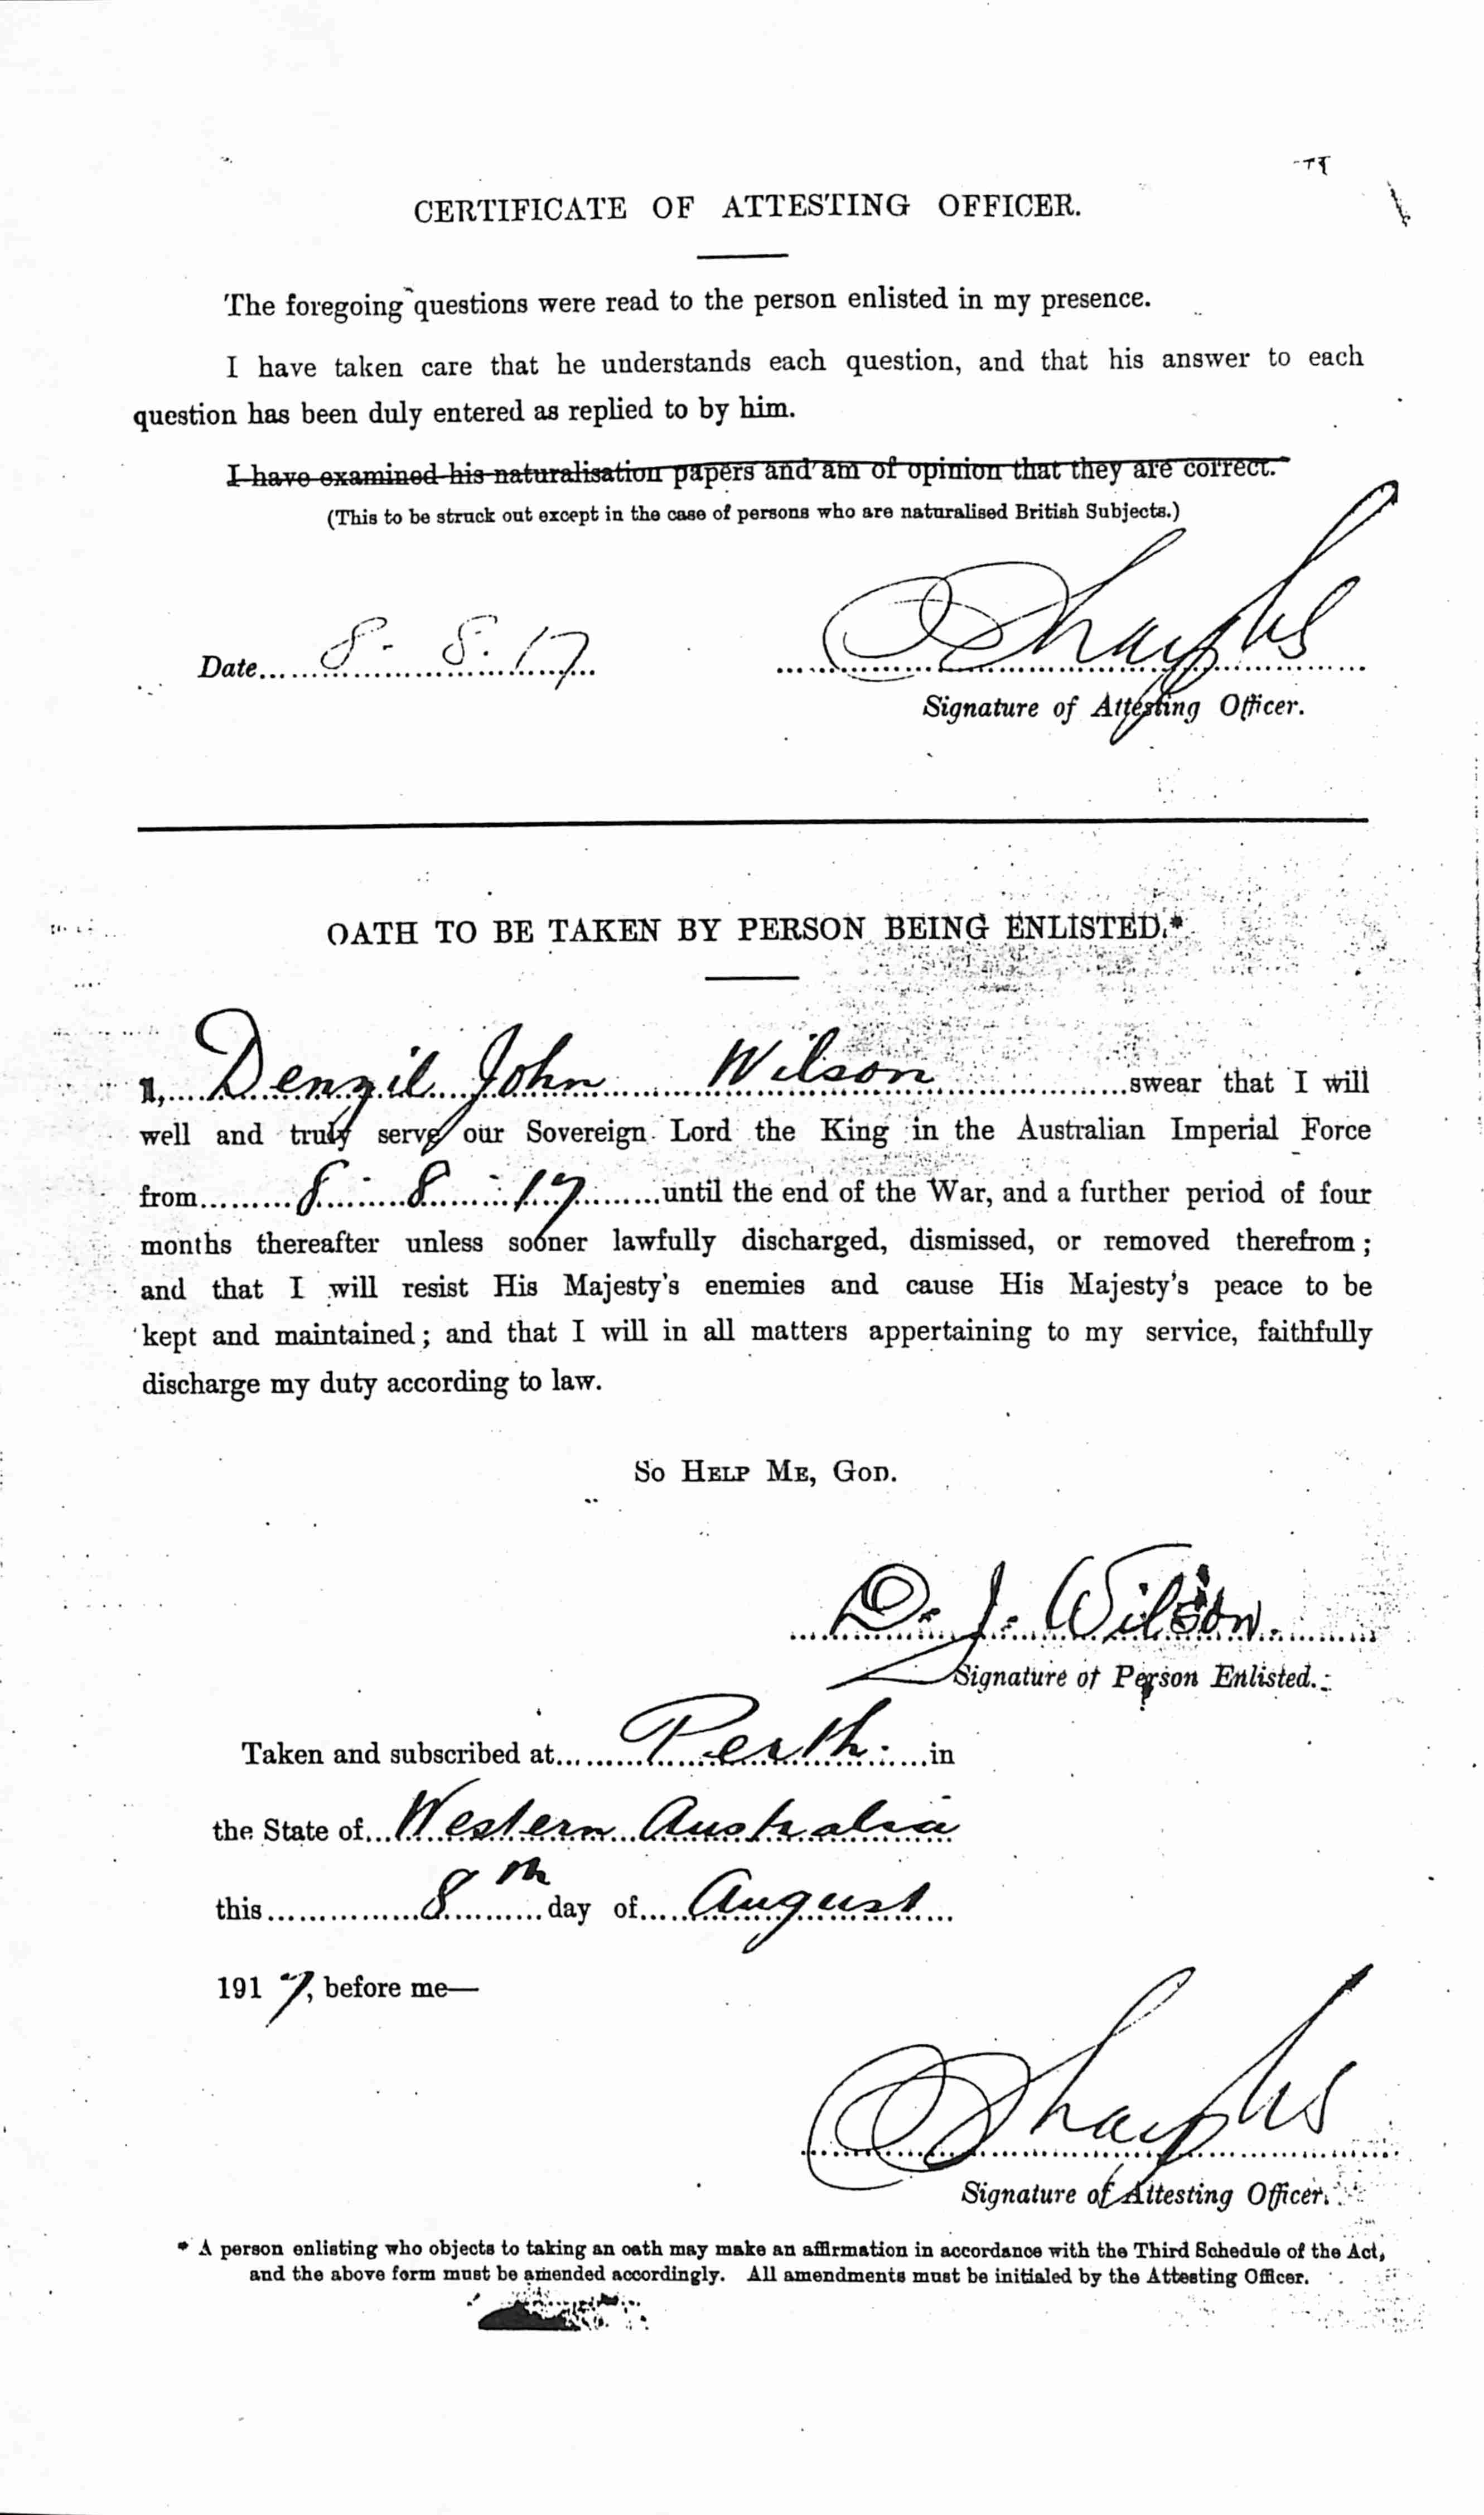 CERTIFICATE OF ATTESTING OFFICER.
The foregoing questions were read to the person enlisted in my presence.
I have taken care that he understands each question, and that his answer to each
question has been duly entered as replied to by him.
I have examined his naturalisation papers and am of opinion that they are correct.
(This to be struck out except in the case of persons who are naturalised British Subjects.)
Date 8. 8. 17
Signature of Attesting Officer.
OATH TO BE TAKEN BY PERSON BEING ENLISTED.*
I, Denzil John Wilson swear that I will
well and truly serve our Sovereign Lord the King in the Australian Imperial Force
from 8 - 8 - 17 until the end of the War, and a further period of four
months thereafter unless sooner lawfully discharged, dismissed, or removed therefrom;
and that I will resist His Majesty's enemies and cause His Majesty's peace to be
kept and maintained; and that I will in all matters appertaining to my service, faithfully
discharge my duty according to law.
So Help Me, God.
D. J. Wilson.
Signature of Person Enlisted.
Taken and subscribed at Perth. in
the State of Western Australia
this 8th day of August
1917, before me—
Signature of Attesting Officer.
* A person enlisting who objects to taking an oath may make an affirmation in accordance with the Third Schedule of the Act,
and the above form must be amended accordingly. All amendments must be initialed by the Attesting Officer.